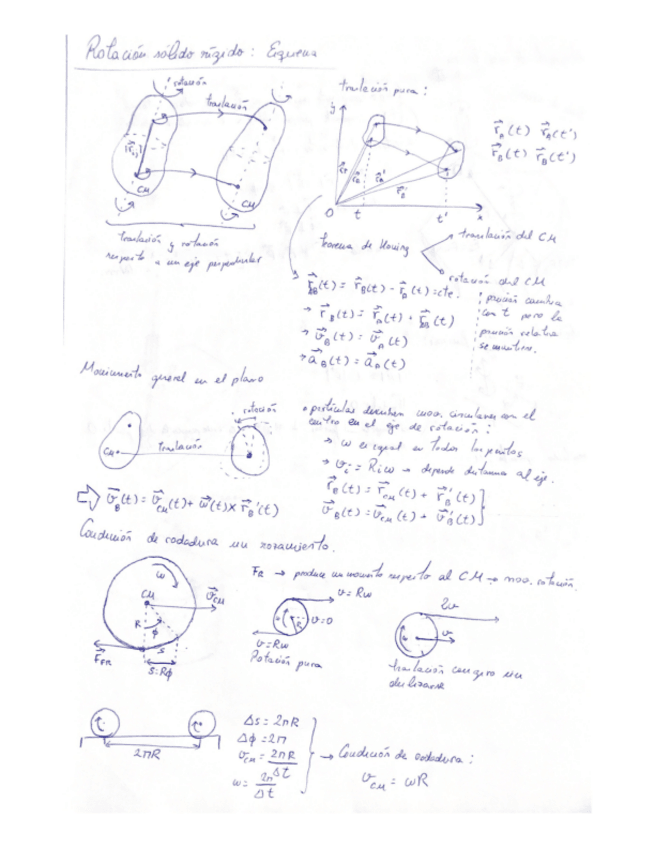 Rotación sólido rígido: Esquema
rotación
traslación
|r⃗ij|
CM
CM
traslación y rotación
respecto a un eje perpendicular
traslación pura:
y
r⃗A(t) r⃗A(t')
r⃗B(t) r⃗B(t')
O t t' x
teorema de Köning
traslación del CM
rotación del CM
r⃗AB(t) = r⃗B(t) - r⃗A(t) = cte.
→ r⃗B(t) = r⃗A(t) + r⃗AB(t)
→ v⃗B(t) = v⃗A(t)
→ a⃗B(t) = a⃗A(t)
posición cambia
con t pero la
posición relativa
se mantiene.
Movimiento general en el plano
CM
traslación
rotación
partículas describen mov. circulares con el
centro en el eje de rotación:
→ ω es igual en todos los puntos
→ vi = Ri ω → depende distancia al eje.
r⃗B(t) = r⃗CM(t) + r⃗B'(t)
v⃗B(t) = v⃗CM(t) + v⃗B'(t)
v⃗B(t) = v⃗CM(t) + ω⃗(t) × r⃗B'(t)
Condición de rodadura sin rozamiento.
ω
CM
v⃗CM
R
ϕ
s
F⃗FR
s = Rϕ
FR → produce un momento respecto al CM → mov. rotación.
v = Rω
R
v = 0
v = Rω
Rotación pura
2v
v
traslación con giro sin
deslizarse
2πR
Δs = 2πR
Δϕ = 2π
vCM = 2πR/Δt
ω = 2π/Δt
→ Condición de rodadura:
vCM = ωR